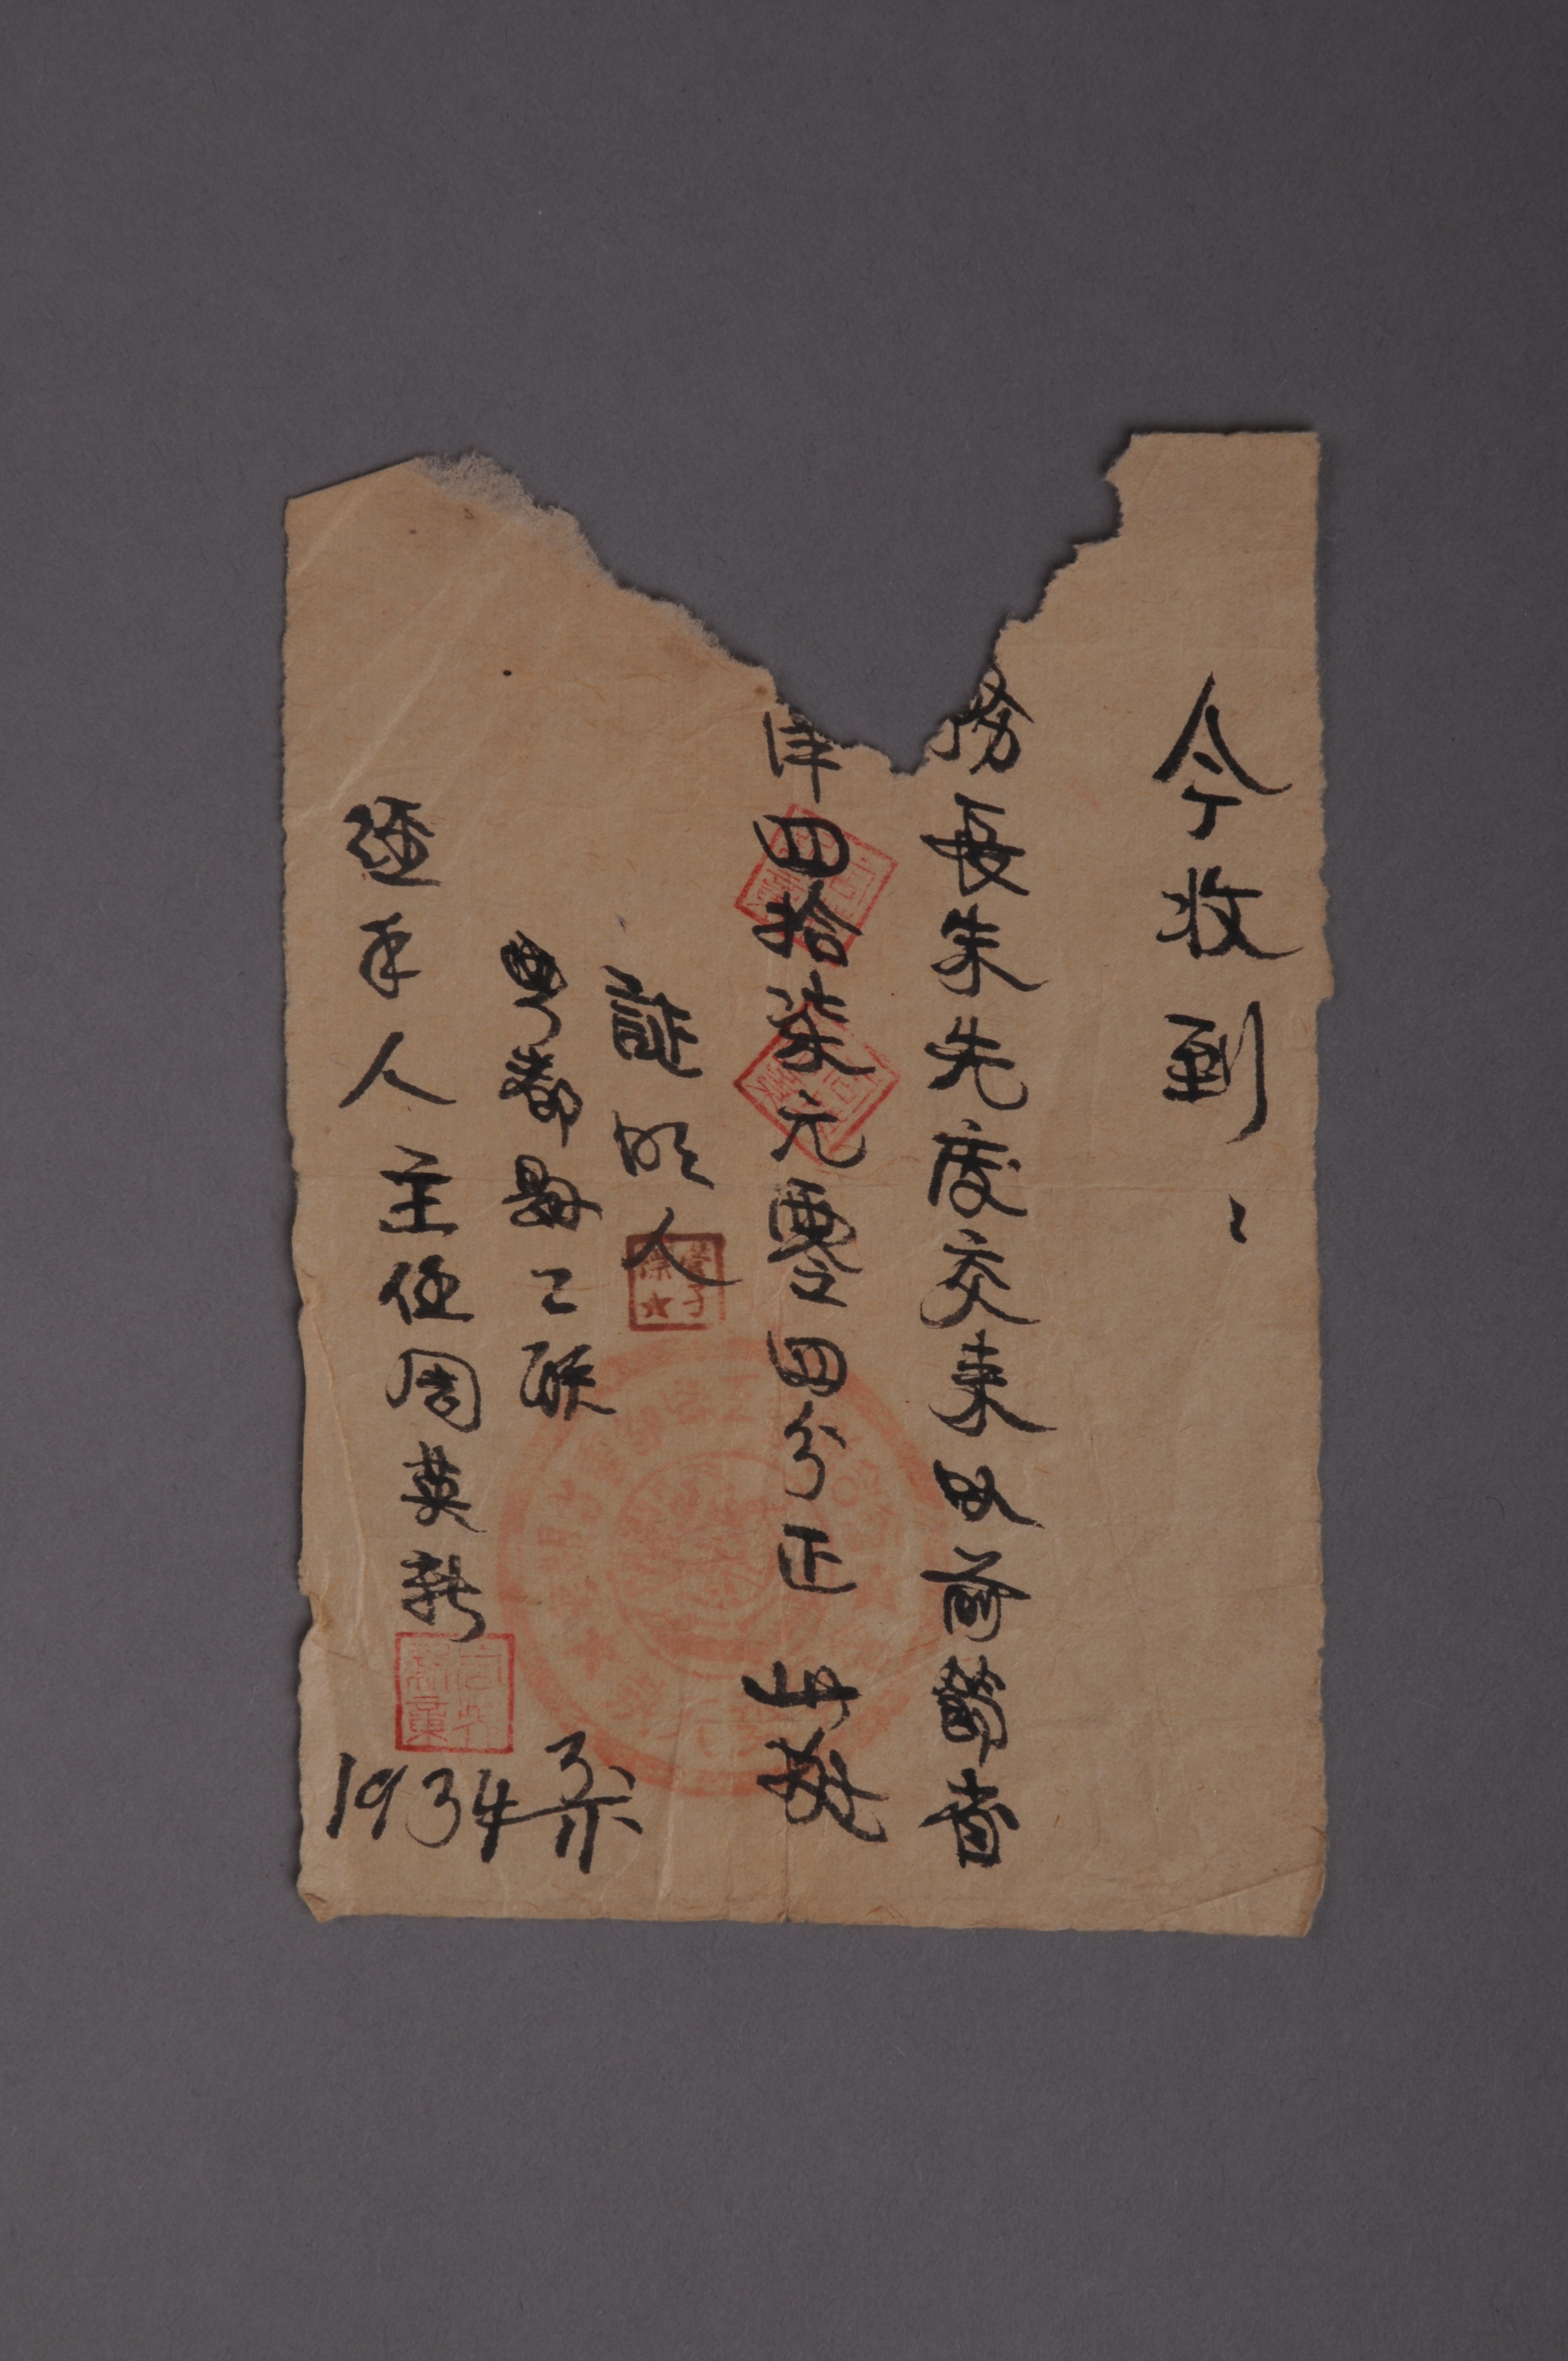 今收到：
務長朱先度交来以前節省
洋四拾柒元零四分正 此據
証明人
雩都縣工联
經手人 主任周英新
1934年